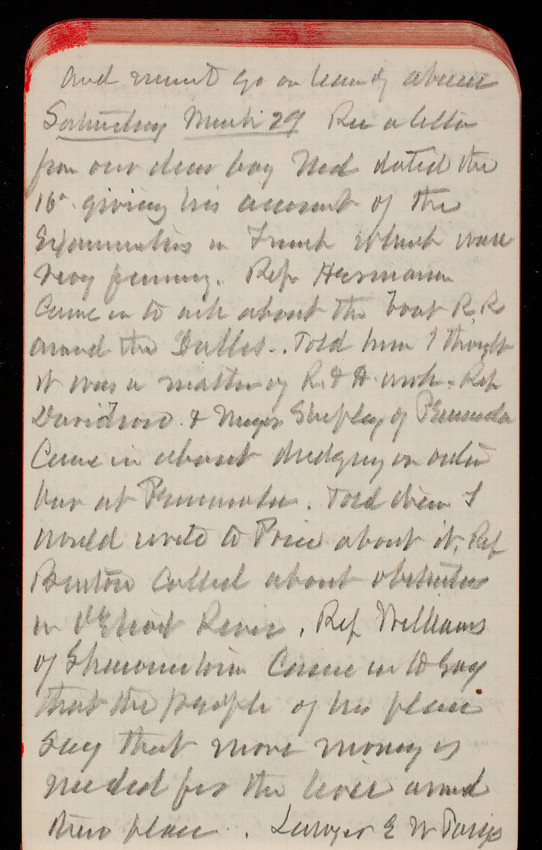 and must go on leave of absence
Saturday March 29 Rec a letter
from our dear boy Ned dated the
16" giving his account of the
Examination in French which was
very funny. Rep Hermann
Came in to ask about the boat R.R.
around the Dalles. Told him I thought
it was a matter of R & H work. Rep
Davidson & Mayor Shipley of Pensacola
Came in about dredging on outer
bar at Pensacola. Told them I
would write to Price about it. Rep
Burton called about obstruction
in Detroit River. Rep Williams
of Shawneetown Came in to say
that the people of his place
say that more money is
needed for the levee around
their place. Lawyer E W